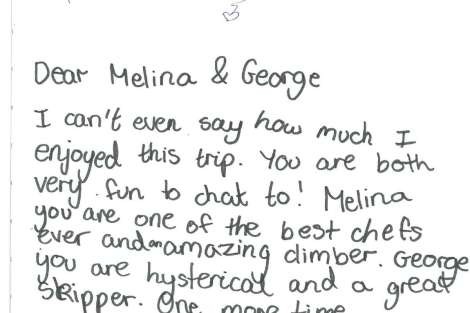 Dear Melina & George
I can't even say how much I
enjoyed this trip. You are both
very fun to chat to! Melina
you are one of the best chefs
ever and an amazing climber. George
you are hysterical and a great
skipper. One more time